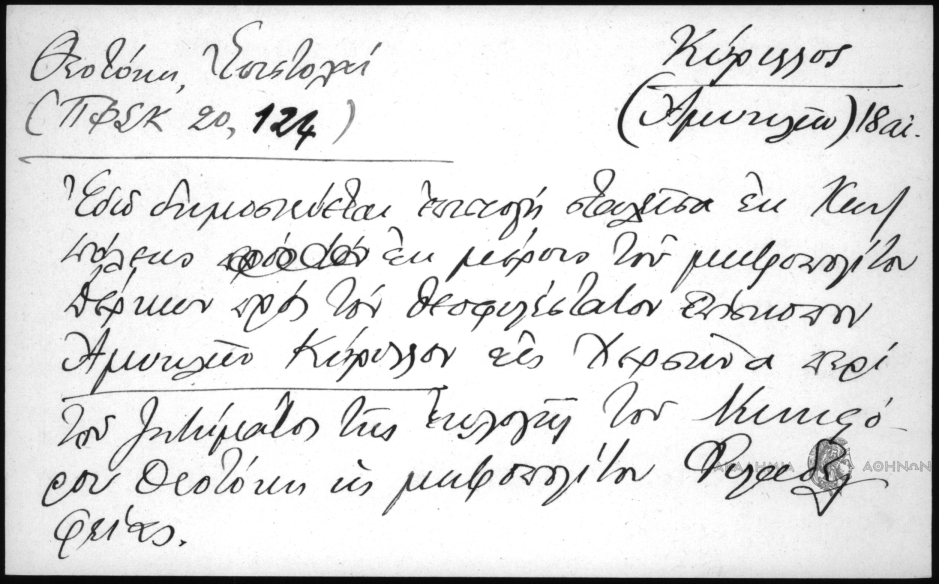 Θεοτόκη, Ἐπιστολαί
(ΠΦΣΚ 20, 124)
Κύριλλος
(Ἀμυκλῶν) 18 αἰ.
Ἐδῶ δημοσιεύεται ἐπιστολή σταλεῖσα ἐκ Κων/
πόλεως ἐκ μέρους τοῦ μητροπολίτου
Δέρκων πρός τόν θεοφιλέστατον ἐπίσκοπον
Ἀμυκλῶν Κύριλλον εἰς Χερσῶνα περί
τοῦ ζητήματος τῆς ἐκλογῆς τοῦ Νικηφό-
ρου Θεοτόκη ὡς μητροπολίτου Φιλαδελ
φείας.
ΑΚΑΔΗΜΙΑ ΑΘΗΝΩΝ